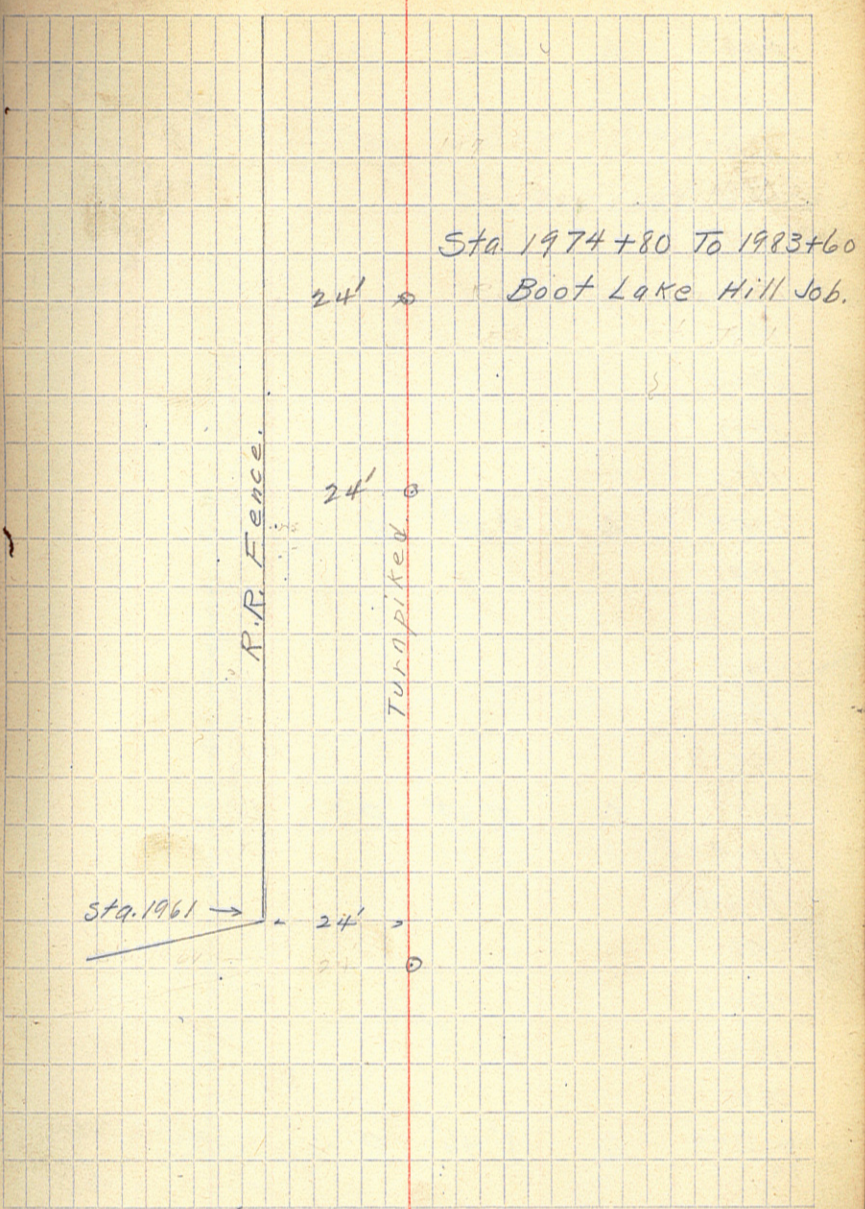 Sta 1974+80 To 1983+60
Boot Lake Hill Job.
24'
24'
R.R. Fence.
Turnpiked
Sta. 1961 →
24'